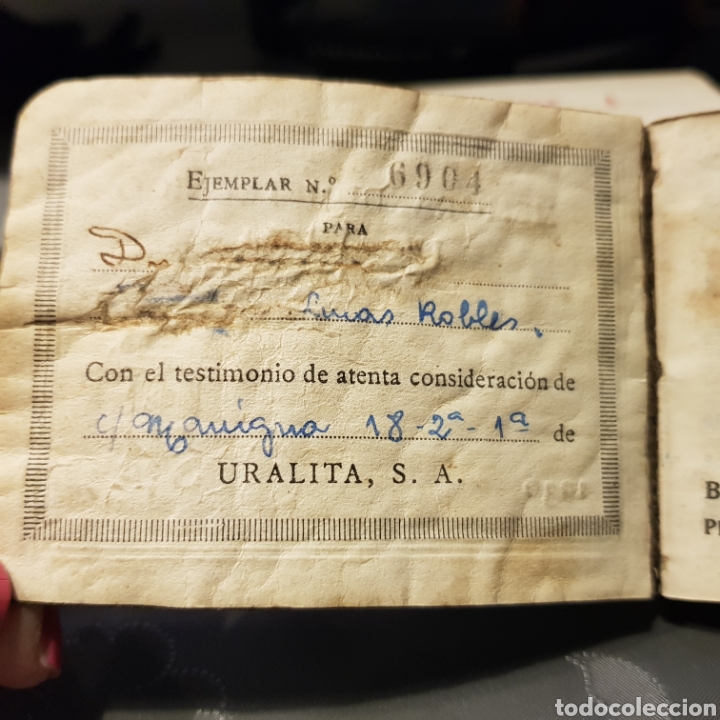 EJEMPLAR N.º 6904
PARA
D.
Lucas Robles.
Con el testimonio de atenta consideración de
c/ Manigua 18-2ª-1ª de
URALITA, S. A.
B
PI
todocoleccion